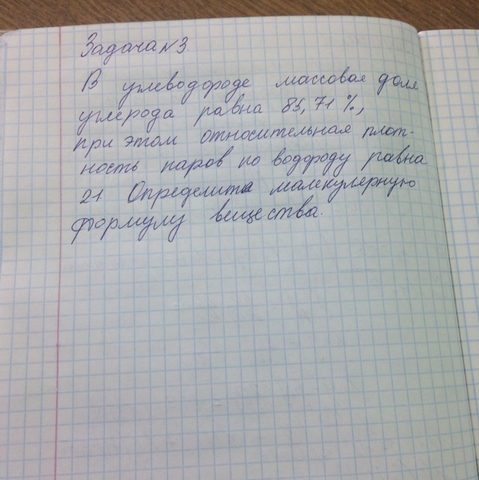 Задача №3
В углеводороде массовая доля
углерода равна 85,71%,
при этом относительная плот-
ность паров по водроду равна
21 Определите малекулерную
формулу вещества.